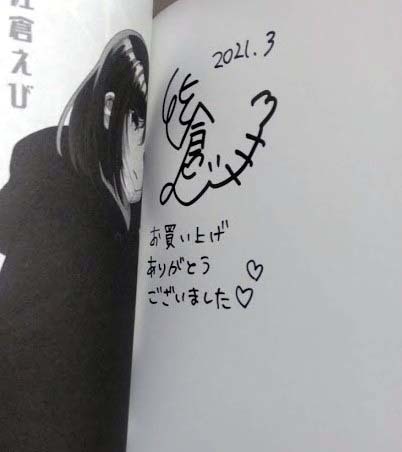 倉えび
2021.3
お買い上げ
ありがとう
ございました♡♡